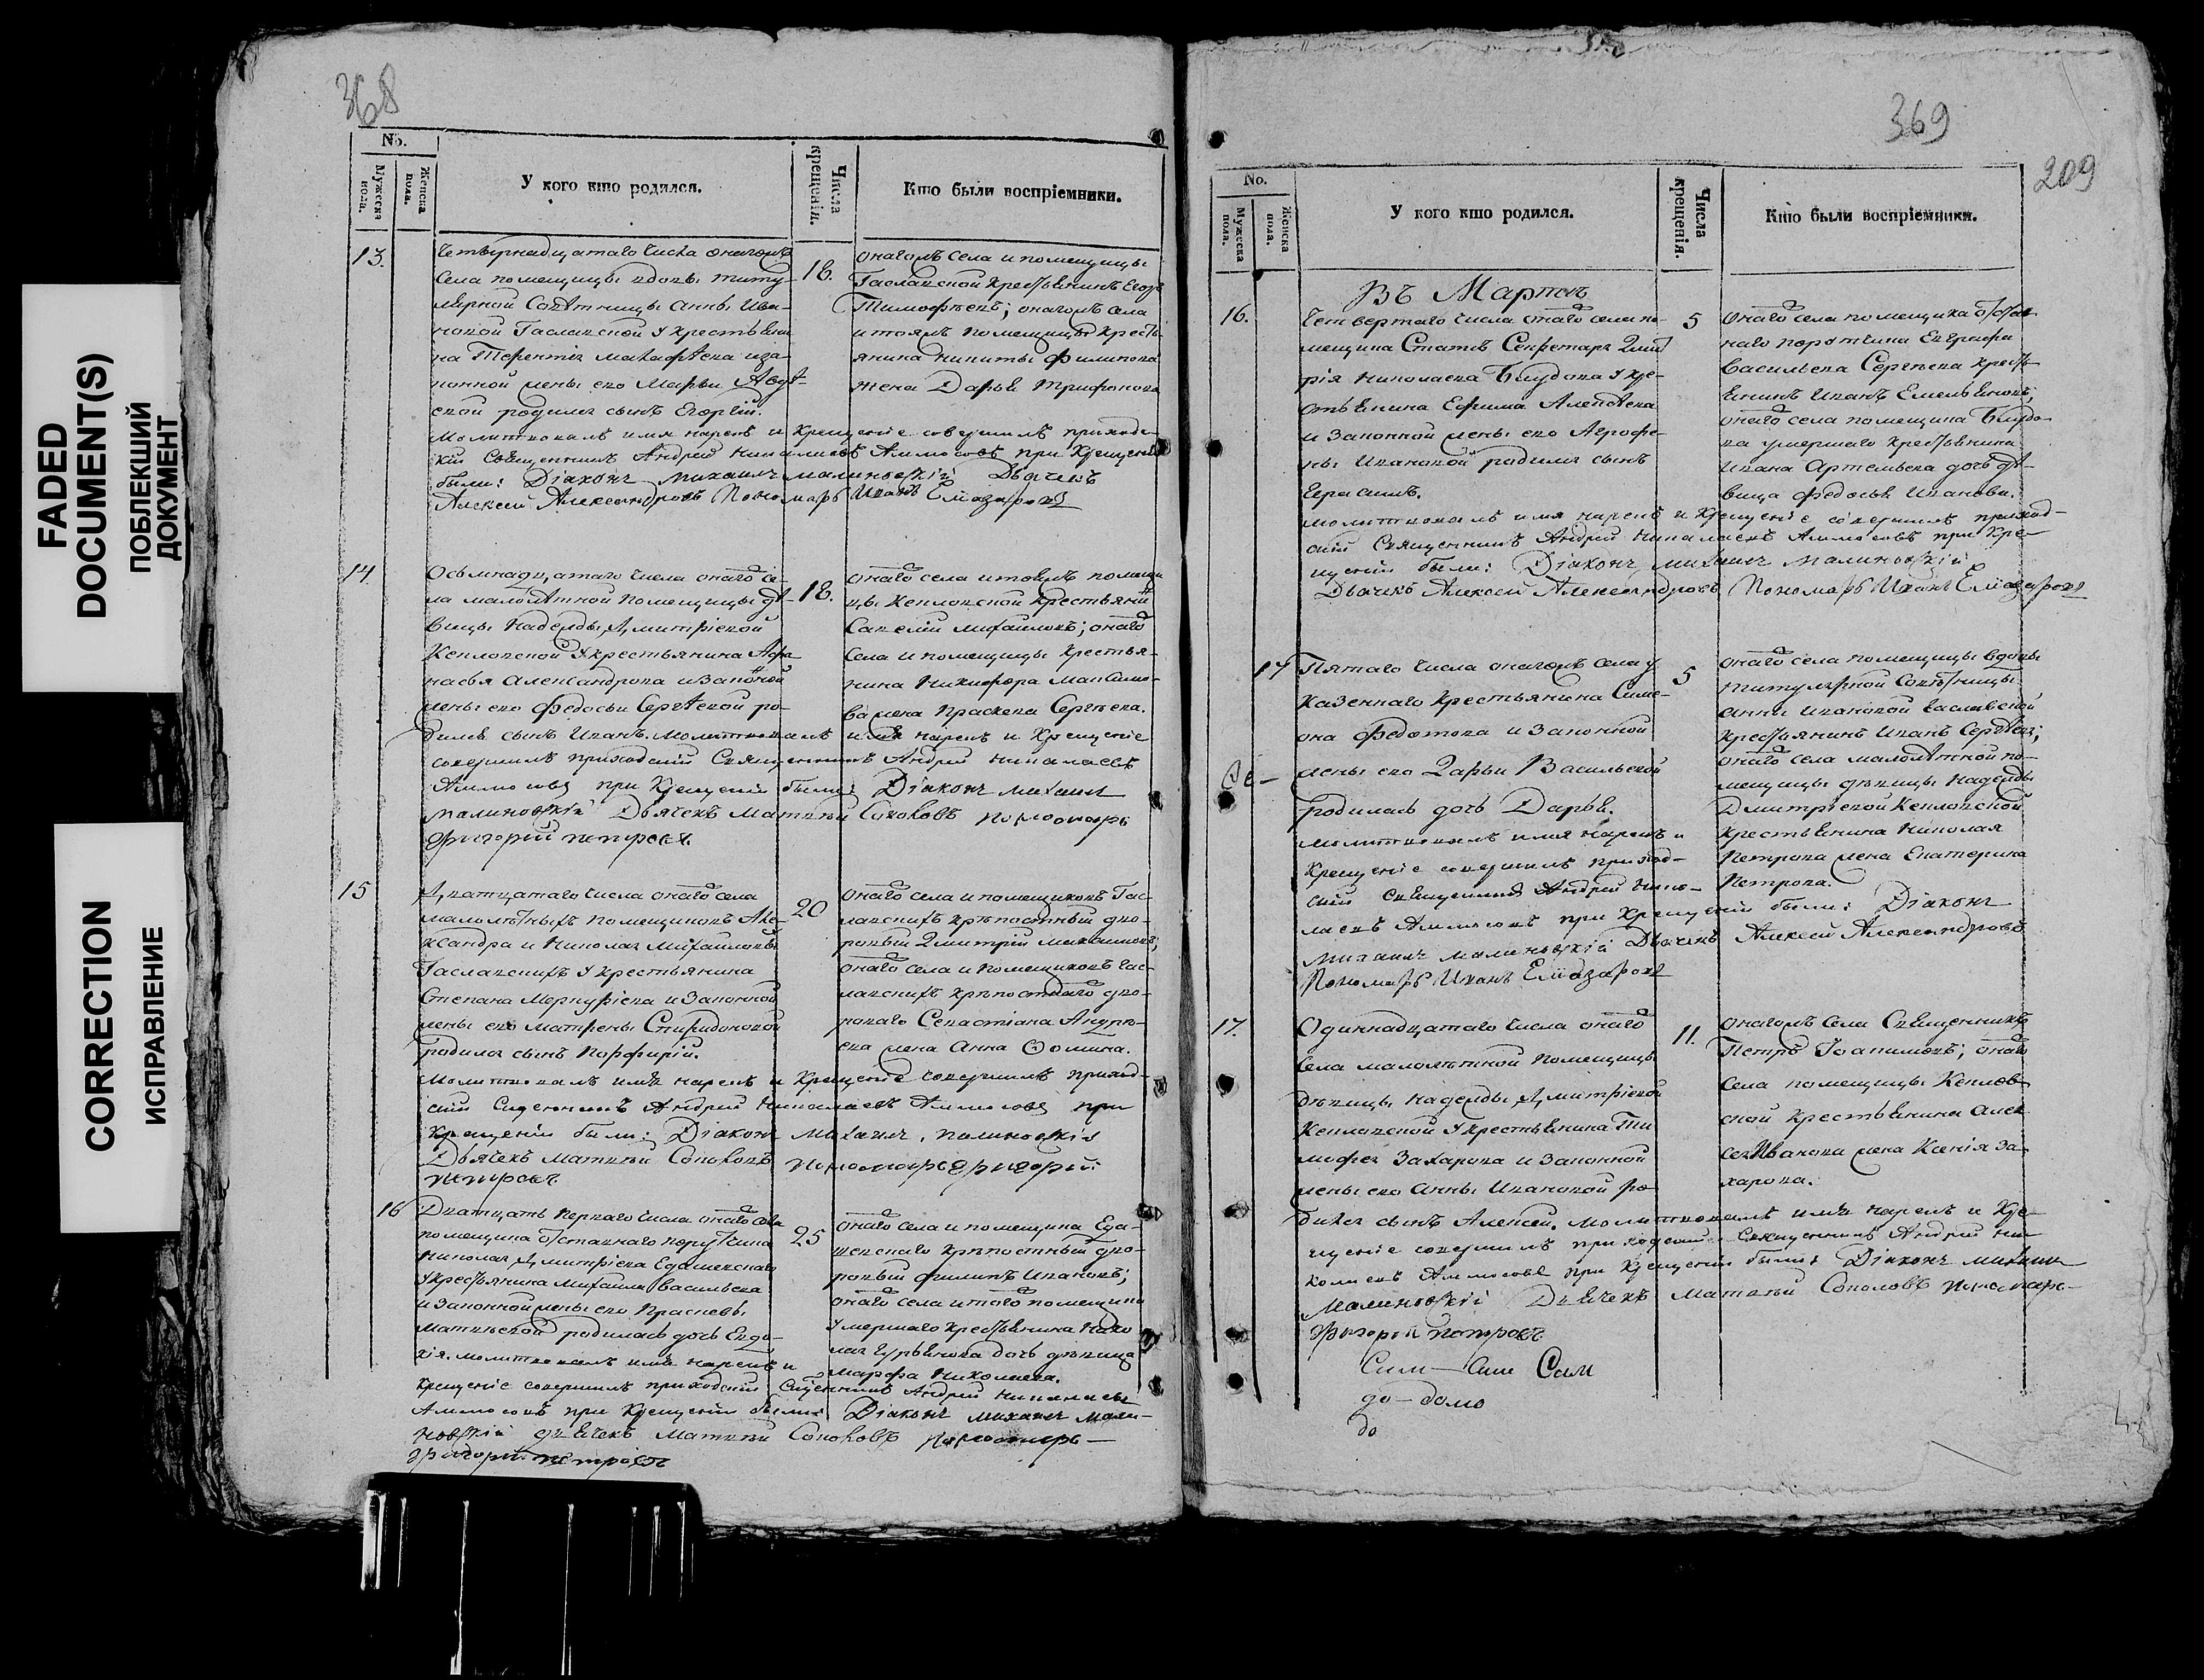 FADED
DOCUMENT(S)
ПОБЛЕКШИЙ
ДОКУМЕНТ
CORRECTION
ИСПРАВЛЕНИЕ
368
No.
Мужеска пола.
Женска пола.
У кого кто родился.
Числа крещенія.
Кто были воспріемники.
13.
Четвернадцатаго числа онагожъ
села помещицы вдовы титу-
лярной Советницы Анны Ива-
новой Гаславской у крестьяни
на Терентія
конной жены его Марьи Авдѣ-
евой родился сынъ Егоргій.
Молитвовалъ имя нарекъ и крещеніе совершилъ приходс-
кій Священникъ Андрей Николаевъ Аммосовъ при крещеніи
были: Діаконъ Михаилъ Малиновскій Дьячекъ
Алексей Александровъ Пономарь Иванъ Елиазаровъ
18.
онагожъ села и помещицы
Гаславской крестьянинъ Егоръ
Тимофѣевъ; онагожъ села
и тояжъ помещицы кресть-
янина Никиты Филипова
жена Дарья Трифонова
14.
Осьмнадцатаго числа онаго се-
ла малолѣтной помещицы дѣ-
вицы Надежды Дмитріевой
Кепловской у крестьянина Афа
насья Александрова и законой
жены его Федосьи Сергѣевой ро-
дился сынъ Иванъ. Молитвовалъ имя нарекъ и крещеніе
совершилъ приходскій Священникъ Андрей Николаевъ
Аммосовъ при крещеніи были: Діаконъ Михаилъ
Малиновскій Дьячекъ Матвѣй Соколовъ пономарь
Григорій петровъ.
18.
онаго села и тояжъ помещи
цы Кепловской крестьянинъ
Савелій Михайловъ; онаго
села и помещицы крестья-
нина Никифора Максимо-
ва жена Праскева Сергѣева.
15
Дватцатаго числа онаго села
малолѣтныхъ помещиковъ Але-
ксандра и Николая Михайловыхъ
Гаславскихъ у крестьянина
Степана Меркурісва и законной
жены его Матрены Спиридоновой
родился сынъ Порфирій.
Молитвовалъ имя нарекъ и крещеніе совершилъ приход-
скій Сщенникъ Андрей Николаевъ Аммосовъ при
крещеніи были: Діаконъ Михаилъ Малиновскій
Дьячекъ Матвѣй Соколовъ пономарь григорій
петровъ
20
онаго села и помещиковъ Гас-
лавскихъ крѣпостный дво-
ровый Дмитрій Михайловъ;
онаго села и помещиковъ Гас-
лавскихъ крѣпостнаго дво-
роваго Севастіана Андрѣ-
ева жена Анна Фомина.
16
Дватцать перваго числа онаго села
помещика отставнаго порутчика
Николая Дмитріева
у крестьянина Михаила Васильева
и законной жены его Праскевы
Матвѣевой родилась дочь Евдо-
кія. молитвовалъ имя нарекъ и
крещеніе совершилъ приходскій Сщенникъ Андрей Николаевъ
Аммосовъ при крещеніи были: Діаконъ Михаилъ Мали-
новскій дьячекъ Матвѣй Соколовъ пономарь
григорій петровъ
25
онаго села и помещика
крѣпостный дво-
ровый Филипъ Ивановъ;
онаго села и того помещика
умершаго крестьянина Нико
лая Гурьянова дочь дѣвица
Марфа Николаева.
369
209
No.
Мужеска пола.
Женска пола.
У кого кто родился.
Числа крещенія.
Кто были воспріемники.
Въ Мартѣ
16.
Четвертаго числа онаго села по-
мещика Статсъ Секретаря Дмит
рія Николаева Блудова у кре-
стьянина Ефима Алексѣева
и законной жены его Агрофе-
ны Ивановой родился сынъ
Герасимъ.
молитвовалъ имя нарекъ и крещеніе совершилъ приход-
скій Священникъ Андрей Николаевъ Аммосовъ при кре-
щеніи были: Діаконъ Михаилъ Малиновскій
Дьячекъ Алексей Александровъ Пономарь Иванъ Елиазаровъ
5
Онаго села помещика отстав
наго поротчика Евграфа
Васильева Сергѣева кресть-
янинъ Иванъ Емельяновъ;
онаго села помещика Блудо-
ва умершаго крестьянина
Ивана Артемьева дочь дѣ-
вица Федосья Иванова.
17
Пятаго числа онагожъ села у
казеннаго крестьянина Симе-
она Федотова и законной
жены его Дарьи Васильевой
родилась дочь Дарья.
молитвовалъ имя нарекъ и
крещеніе совершилъ приход-
скій Священникъ Андрей Нико-
лаевъ Аммосовъ при крещеніи были: Діаконъ
Михаилъ Малиновскій Дьячекъ Алексей Александровъ
Пономарь Иванъ Елиазаровъ
5
онаго села помещицы вдовы
титулярной Советницы
Анны Ивановой Гаславской
крестьянинъ Иванъ Сергѣевъ;
онаго села малолѣтной по-
мещицы дѣвицы Надежды
Дмитріевой Кепловской
крестьянина Николая
Петрова жена Екатерина
Петрова.
17.
Одиннадцатаго числа онаго
села малолѣтной помещицы
дѣвицы Надежды Дмитріевой
Кепловской у крестьянина Ти
мофея Захарова и законной
жены его Анны Ивановой ро-
дился сынъ Алексей. молитвовалъ имя нарекъ и кре-
щеніе совершилъ приходскій Священникъ Андрей Ни-
колаевъ Аммосовъ при крещеніи были: Діаконъ Михаилъ
Малиновскій Дьячекъ Матвѣй Соколовъ пономарь
григорій петровъ
11.
онагожъ села Священникъ
Петръ Іоакимовъ; онаго
села помещицы Кеплов-
ской крестьянина Алек
сея Иванова жена Ксенія За-
харова.
Сим — Сим Сим
до — домо
до